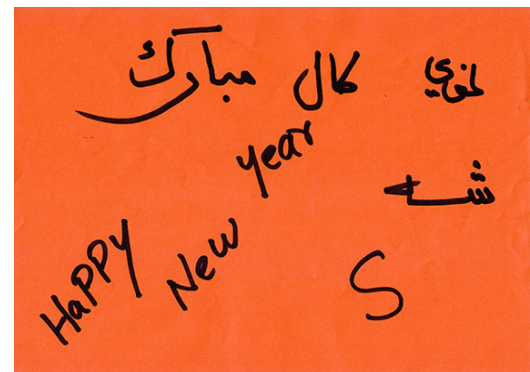 کال مبارك
شه
Happy New year
S